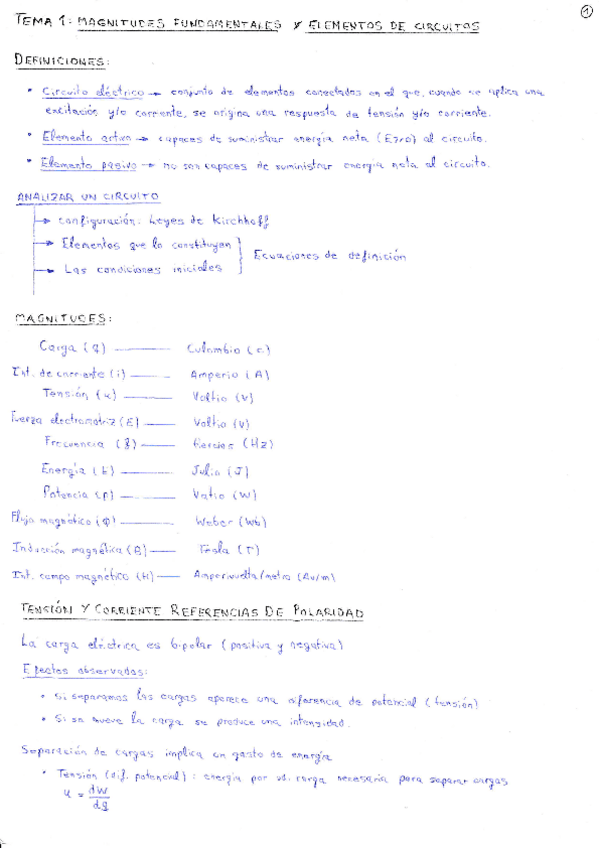 1
TEMA 1: MAGNITUDES FUNDAMENTALES Y ELEMENTOS DE CIRCUITOS
DEFINICIONES:
• Circuito eléctrico → conjunto de elementos conectados en el que, cuando se aplica una
excitación y/o corriente, se origina una respuesta de tensión y/o corriente.
• Elemento activo → capaces de suministrar energía neta (E>0) al circuito.
• Elemento pasivo → no son capaces de suministrar energía neta al circuito.
ANALIZAR UN CIRCUITO
→ Configuración: Leyes de Kirchhoff
→ Elementos que lo constituyen
→ Las condiciones iniciales } Ecuaciones de definición
MAGNITUDES:
Carga (q) — Culombio (C)
Int. de corriente (i) — Amperio (A)
Tensión (u) — Voltio (V)
Fuerza electromotriz (E) — Voltio (V)
Frecuencia (f) — Hercios (Hz)
Energía (E) — Julio (J)
Potencia (p) — Vatio (W)
Flujo magnético (Φ) — Weber (Wb)
Inducción magnética (B) — Tesla (T)
Int. campo magnético (H) — Amperivuelta/metro (Av/m)
TENSIÓN Y CORRIENTE REFERENCIAS DE POLARIDAD
La carga eléctrica es bipolar (positiva y negativa)
Efectos observados:
• Si separamos las cargas aparece una diferencia de potencial (tensión)
• Si se mueve la carga se produce una intensidad.
Separación de cargas implica un gasto de energía
• Tensión (dif. potencial): energía por ud. carga necesaria para separar cargas
u = dW/dq